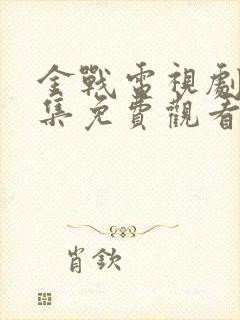 金戰電視劇
集免費觀看
肖欽